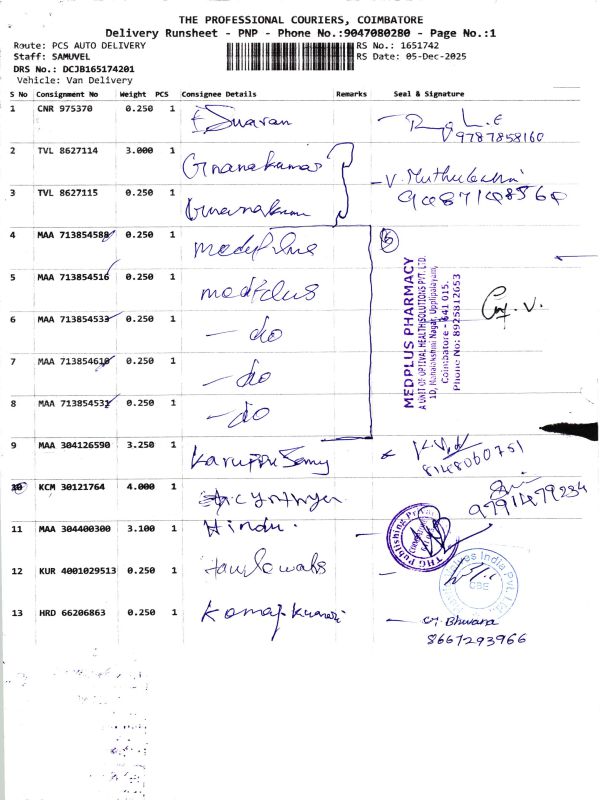 THE PROFESSIONAL COURIERS, COIMBATORE
Delivery Runsheet - PNP - Phone No.:9047080280 - Page No.:1
Route: PCS AUTO DELIVERY
RS No.: 1651742
Staff: SAMUVEL
RS Date: 05-Dec-2025
DRS No.: DCJB165174201
Vehicle: Van Delivery
S No Consignment No Weight PCS Consignee Details Remarks Seal & Signature
1 CNR 975370 0.250 1
9787858160
2 TVL 8627114 3.000 1 Gnanakumar
3 TVL 8627115 0.250 1 Gnanakumar
4 MAA 713854588 0.250 1 medplus 5
5 MAA 713854516 0.250 1 medplus
6 MAA 713854533 0.250 1 — do
7 MAA 713854610 0.250 1 — do
8 MAA 713854531 0.250 1 — do
MEDPLUS PHARMACY
A UNIT OF OPTIVAL HEALTH SOLUTIONS PVT. LTD.
1D, Mahalakshmi Nagar, Uppilipalayam,
Coimbatore - 641 015.
Phone No: 8925812653
9 MAA 304126590 3.250 1 Karuppu Samy
8148060751
10 KCM 30121764 4.000 1
9791479234
11 MAA 304400300 3.100 1 Hindu.
THG Publishing Pr
12 KUR 4001029513 0.250 1
India Pvt. Ltd.
CBE
13 HRD 66206863 0.250 1
Bhwana
8667293966